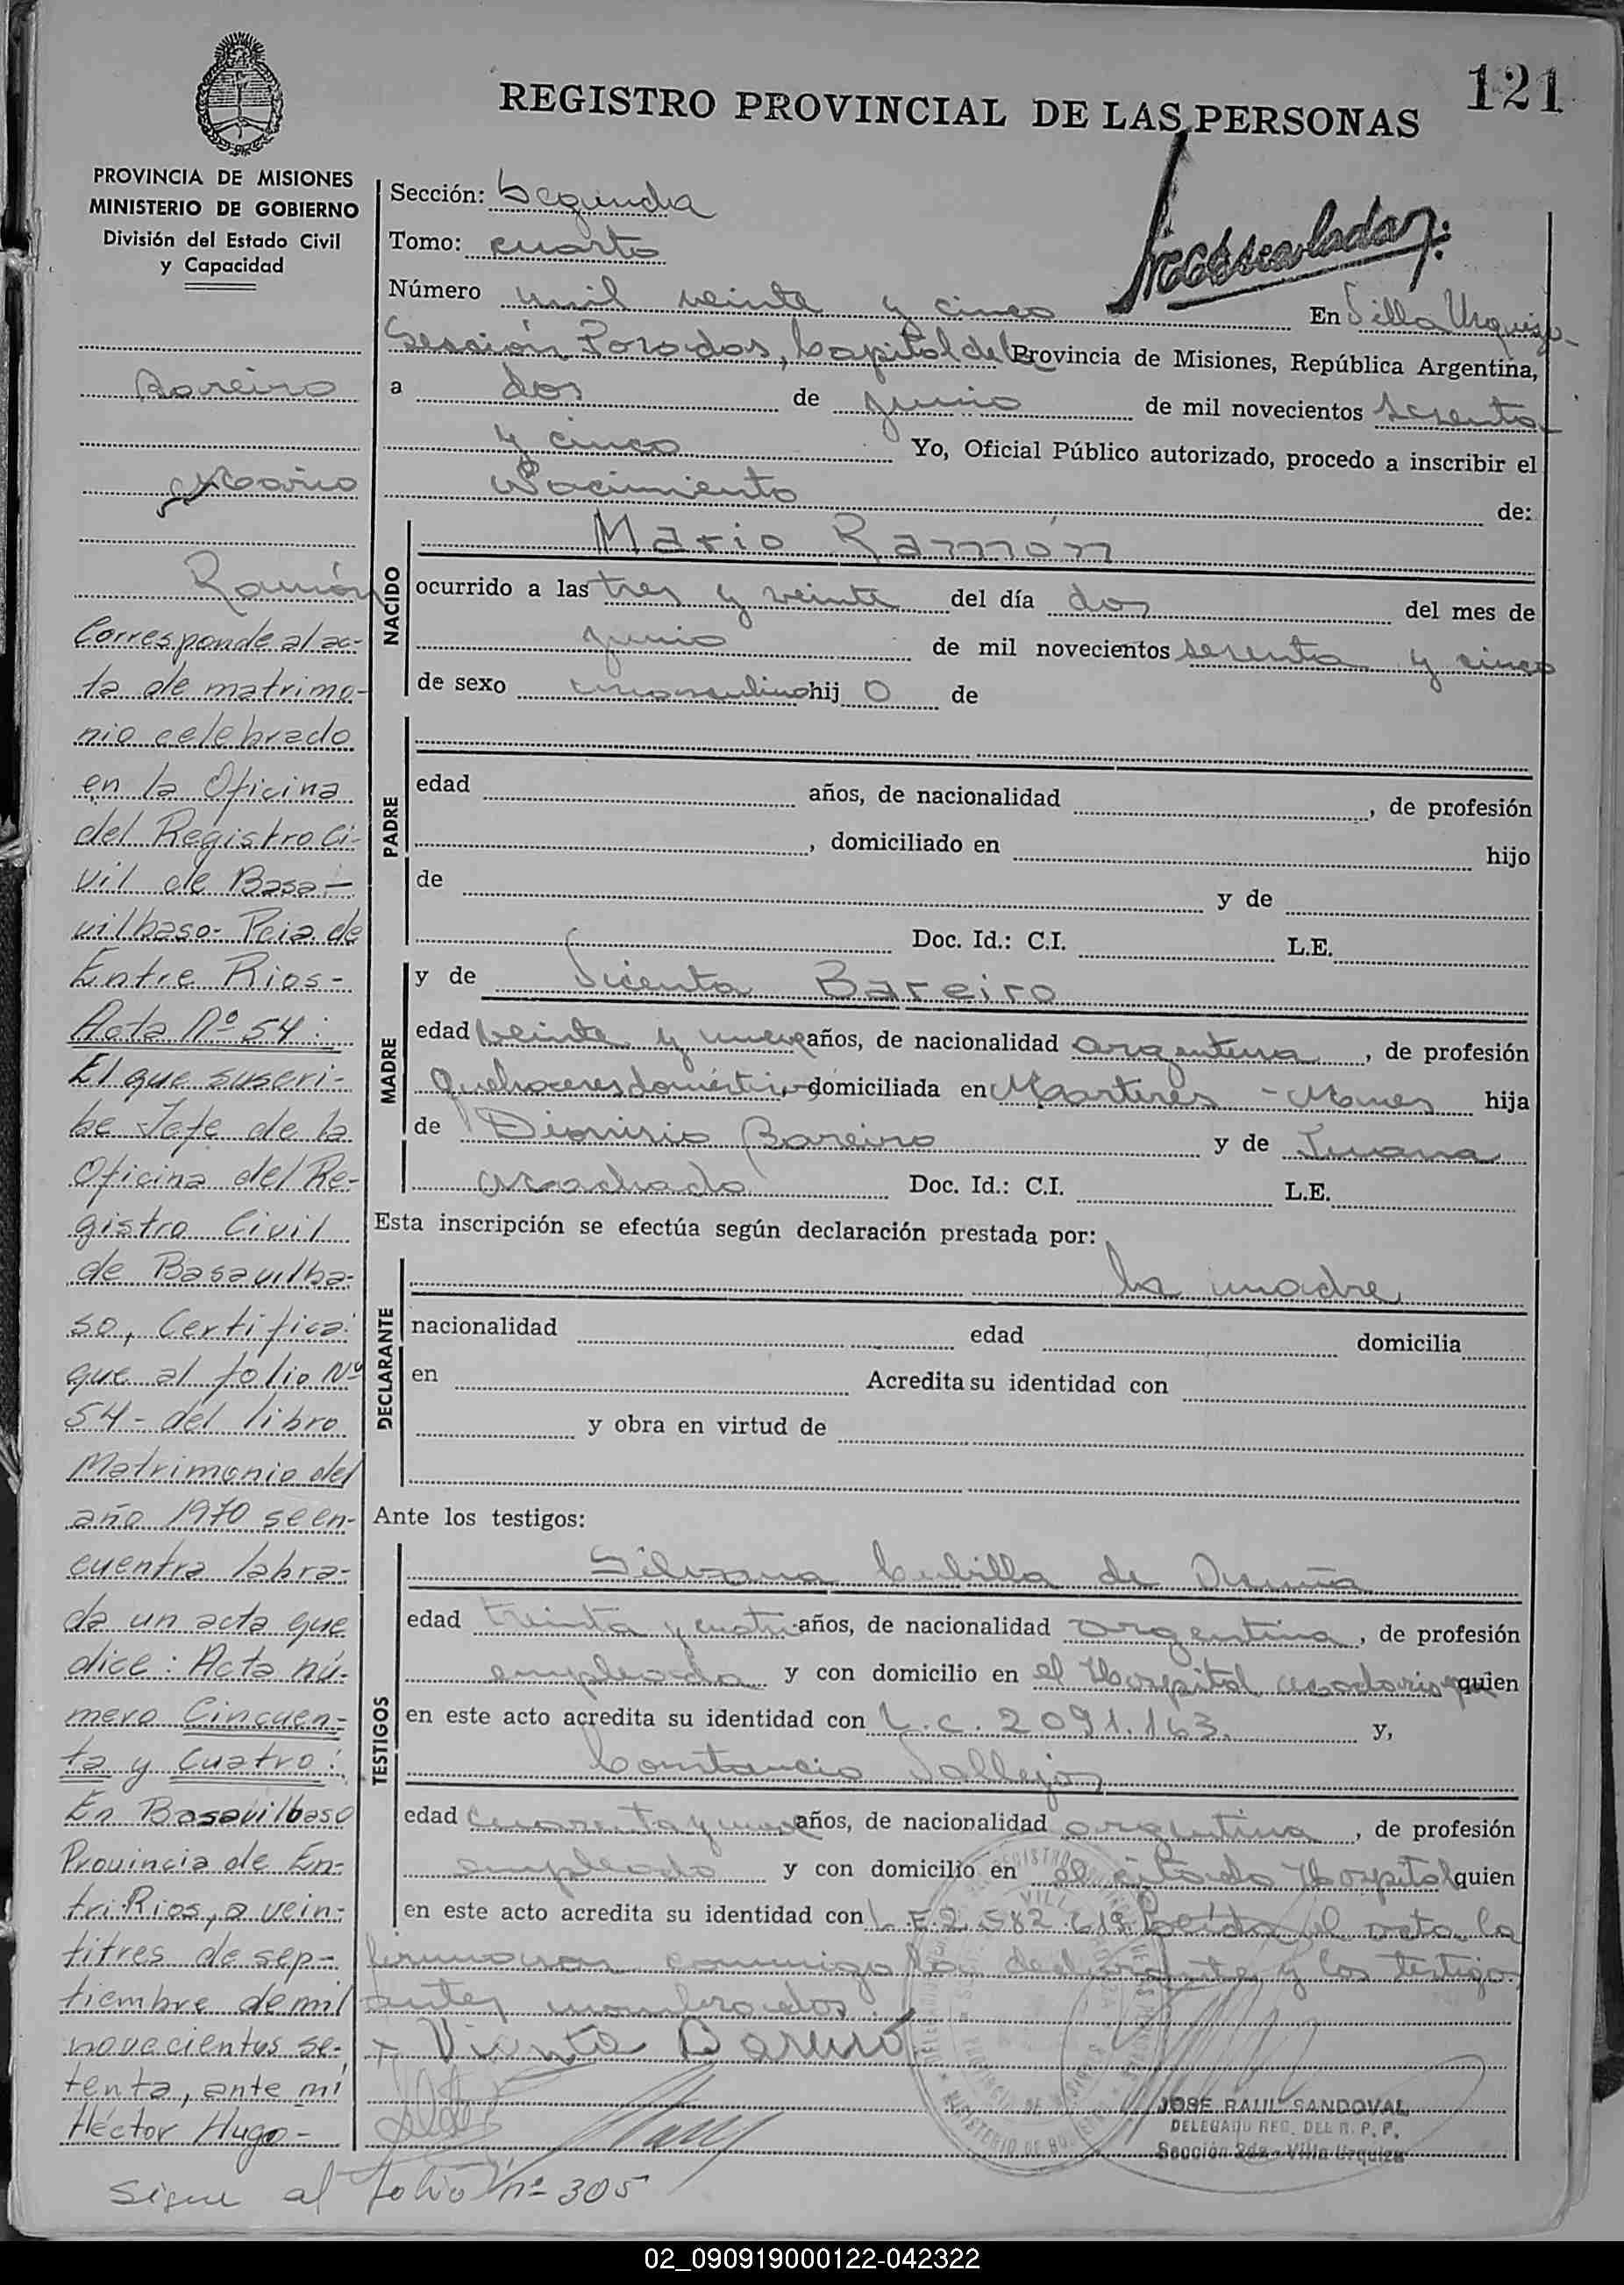 121
REGISTRO PROVINCIAL DE LAS PERSONAS
PROVINCIA DE MISIONES
MINISTERIO DE GOBIERNO
División del Estado Civil
y Capacidad
Bareiro
Mario
Ramón
Corresponde al ac-
ta de matrimo-
nio celebrado
en la Oficina
del Registro Ci-
vil de Basa-
vilbaso- Pcia. de
Entre Rios-
Acta Nº 54:
El que suscri-
be Jefe de la
Oficina del Re-
gistro Civil
de Basavilba-
so, Certifica:
que al folio Nº
54- del libro
Matrimonio del
año 1970 se en-
cuentra labra-
da un acta que
dice: Acta nú-
mero Cincuen-
ta y Cuatro:
En Basavilbaso
Provincia de En-
tre Rios, a vein-
titres de sep-
tiembre de mil
novecientos se-
tenta, ante mí
Héctor Hugo-
Sigue al folio nº 305
Sección: Segunda
Tomo: cuarto
Número mil veinte y cinco En Villa Urquiza
Sección Posadas, Capital de la Provincia de Misiones, República Argentina,
a dos de junio de mil novecientos sesenta
y cinco Yo, Oficial Público autorizado, procedo a inscribir el
Nacimiento de:
NACIDO
Mario Ramón
ocurrido a las tres y veinte del día dos del mes de
junio de mil novecientos sesenta y cinco
de sexo masculino hij o de
PADRE
edad años, de nacionalidad , de profesión
, domiciliado en hijo
de y de
Doc. Id.: C.I. L.E.
MADRE
y de Vicenta Bareiro
edad veinte y nueve años, de nacionalidad argentina , de profesión
Quehaceres domésticos domiciliada en Martires - Mnes hija
de Dionisio Bareiro y de Juana
Doc. Id.: C.I. L.E.
Esta inscripción se efectúa según declaración prestada por:
DECLARANTE
la madre
nacionalidad edad domicilia
en Acredita su identidad con
y obra en virtud de
Ante los testigos:
TESTIGOS
Silvana Cubilla de
edad treinta y cuatro años, de nacionalidad argentina , de profesión
empleada y con domicilio en el Hospital quien
en este acto acredita su identidad con L.C. 2091.163. y,
Constancio Vallejos
edad cuarenta y nueve años, de nacionalidad argentina , de profesión
empleado y con domicilio en el citado Hospital quien
en este acto acredita su identidad con L.E. 2.582.619 Leída el acta la
firmaron conmigo la declarante y los testigos
antes nombrados.
Vicenta Bareiro
JOSE RAUL SANDOVAL
DELEGADO REG. DEL R. P. P.
Sección 2da - Villa Urquiza
02_090919000122-042322